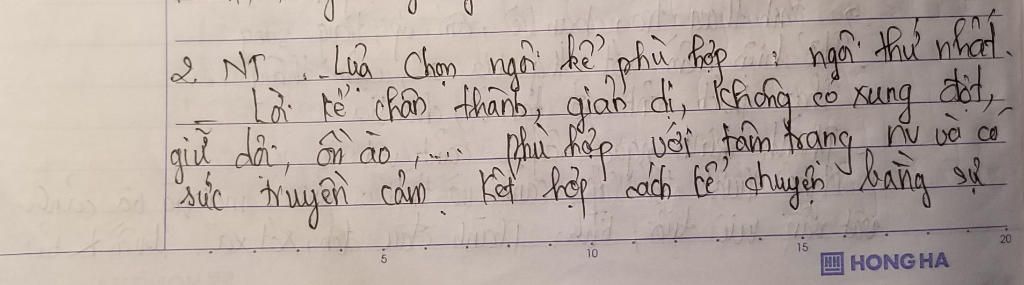 2. NT. - Lựa chọn ngôi kể phù hợp: ngôi thứ nhất.
- Lời kể chân thành, giản dị, không có xung đột,
giữ dội, ồn ào,.... phù hợp với tâm trạng nv và có
sức truyền cảm. Kết hợp cách kể chuyện bằng sự
5 10 15 20
HONG HA